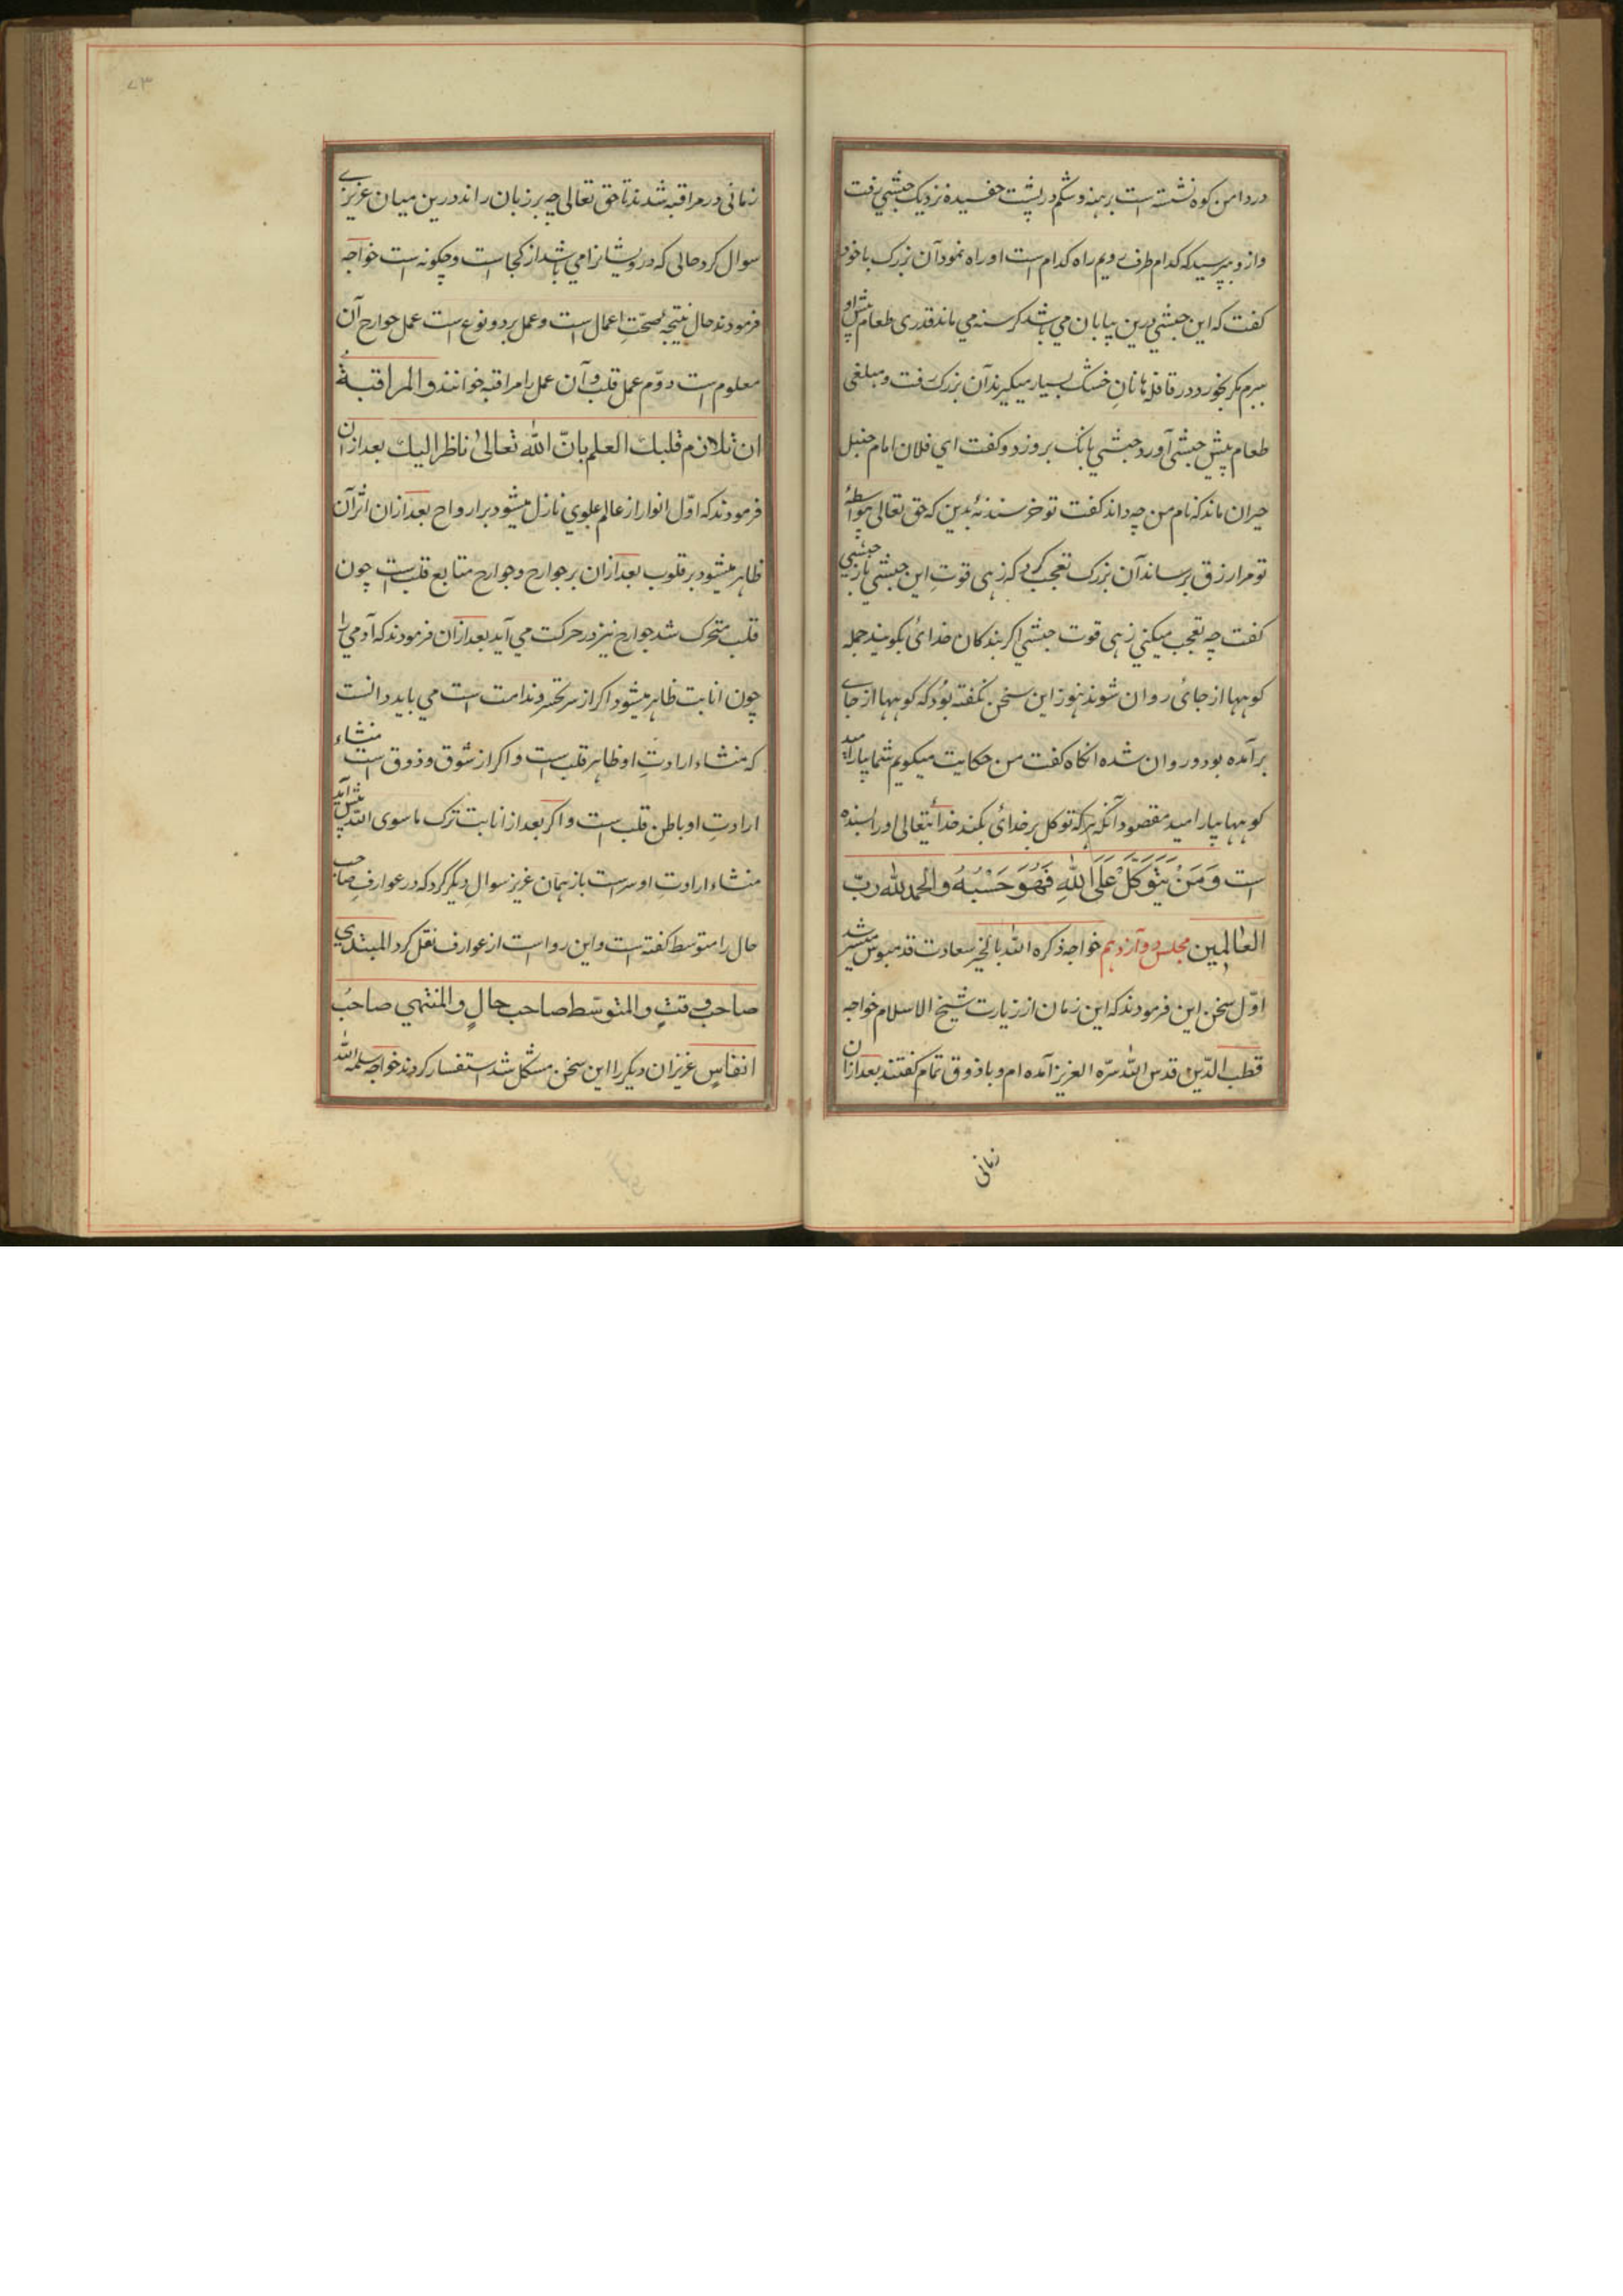 در دامن کوه نشسته است برهنه و شکم در پشت خفسیده نزدیک حبشی رفت
و از و بپرسید که کدام طرف رویم راه کدام است او راه نمود آن بزرک با خود
کفت که این حبشی درین بیابان می باشد کرسنه می ماند قدری طعام پیش او
ببرم مکر بخورد در قافله ها نانِ خشک بسیار میکیرند آن بزرک رفت و مبلغی
طعام پیش حبشی آورد حبشی بانک برو زد و کفت ای فلان امام حنبل
حیران ماند که نام من چه داند کفت تو خرسند نهٔ بدین که حق تعالی بواسطهٔ
تو مرا رزق برساند آن بزرک تعجب کرد که زهی قوتِ این حبشی باز حبشی
کفت چه تعجب میکنی زهی قوت حبشی اکر بندکان خدائ بکویند جمله
کوهها از جائ روان شوند هنوز این سخن نکفته بُود که کوهها از جای
برآمده بود و روان شده انکاه کفت من حکایت میکویم شما بیارامید
کوهها بیارامید مقصود آنکه هرکه توکل بر خدائ بکند خدائتعالی او را بسنده
است وَمَنْ يَتَوَكَّلْ عَلَى اللّٰهِ فَهُوَ حَسْبُهُ والحمد للّٰه ربّ
العٰالمين مجلس دوآزدهم خواجه ذکره اللّٰه بالخیر سعادت قدمبوس میسّر شد
اوّل سخن این فرمودند که این زمان از زیارت شیخ الاسلام خواجه
قطب الدّین قدس اللّٰه سرّه العزیز آمده ام و با ذوق تمام کفتند بعد ازان
زمانی
۷۳
زمانی در مراقبه شدند تا حق تعالی چه بر زبان راند درین میان عزیزے
سوال کرد حالی که درویشانرا می باشد از کجا است و چکونه است خواجه
فرمودند حال نتیجهٔ صحّتِ اعمال است و عمل بر دو نوع است عمل جوارح آن
معلوم است دوّم عمل قلب و آن عمل را مراقبه خوانند والمراقبةُ
ان تلازم قلبك العلم بانّ اللّٰه تعالیٰ ناظر اليك بعد ازان
فرمودند که اوّل انوار از عالم علوی نازل میشود بر ارواح بعد ازان اثر آن
ظاهر میشود بر قلوب بعد ازان بر جوارح و جوارح متابع قلب است چون
قلب متحرک شد جوارح نیز در حرکت می آید بعد ازان فرمودند که آدمی را
چون انابت ظاهر میشود اکر از سر تحسّر و ندامت است می باید دانست
که منشاء ارادتِ او ظاهر قلب است و اکر از شوق و ذوق است منشاء
ارادتِ او باطن قلب است و اکر بعد از انابت ترک ما سوی اللّٰه پیش آید
منشاء ارادتِ او سر است باز همان عزیز سوالِ دیکر کرد که در عوارف صاحب
حال را متوسط کفته است و این روا است از عوارف نقل کرد المبتدي
صاحب وقتٍ والمتوسّط صاحب حالٍ والمنتهي صاحبُ
انفاسٍ عزیزان دیکر را این سخن مشکل شد استفسار کردند خواجه سلمه اللّٰه